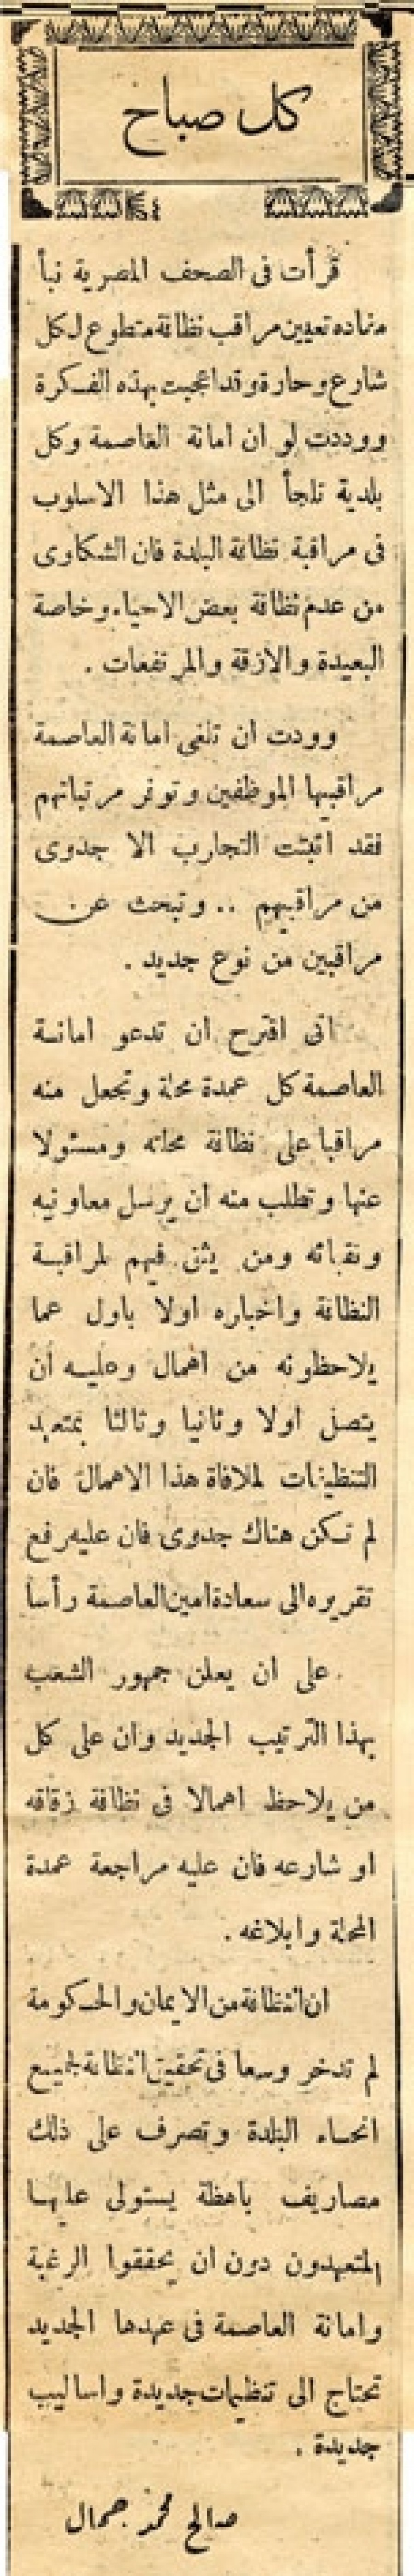 كل صباح
قرأت فى الصحف المصرية نبأ
مفاده تعيين مراقب نظافة متطوع لكل
شارع وحارة وقد اعجبت بهذه الفكرة
ووددت لو ان امانة العاصمة وكل
بلدية تلجأ الى مثل هذا الاسلوب
فى مراقبة نظافة البلدة فان الشكاوى
من عدم نظافة بعض الاحياء وخاصة
البعيدة والازقة والمرتفعات .
وودت ان تلغى امانة العاصمة
مراقبيها الموظفين وتوفر مرتباتهم
فقد اثبتت التجارب الا جدوى
من مراقبيهم .. وتبحث عن
مراقبين من نوع جديد .
انى اقترح ان تدعو امانة
العاصمة كل عمدة محلة وتجعل منه
مراقبا على نظافة محلته ومسئولا
عنها وتطلب منه ان يرسل معاونيه
ونقبائه ومن يثق فيهم لمراقبة
النظافة واخباره اولا باول عما
يلاحظونه من اهمال وعليه ان
يتصل اولا وثانيا وثالثا بمتعهد
التنظيفات لملافاة هذا الاهمال فان
لم تكن هناك جدوى فان عليه رفع
تقريره الى سعادة امين العاصمة رأسا
على ان يعلن جمهور الشعب
بهذا الترتيب الجديد وان على كل
من يلاحظ اهمالا فى نظافة زقاقه
او شارعه فان عليه مراجعة عمدة
المحلة وابلاغه .
ان النظافة من الايمان والحكومة
لم تدخر وسعا فى تحقيق النظافة لجميع
انحاء البلدة وتصرف على ذلك
مصاريف باهظة يستولى عليها
المتعهدون دون ان يحققوا الرغبة
وامانة العاصمة فى عهدها الجديد
تحتاج الى تنظيمات جديدة واساليب
جديدة .
صالح محمد جمال